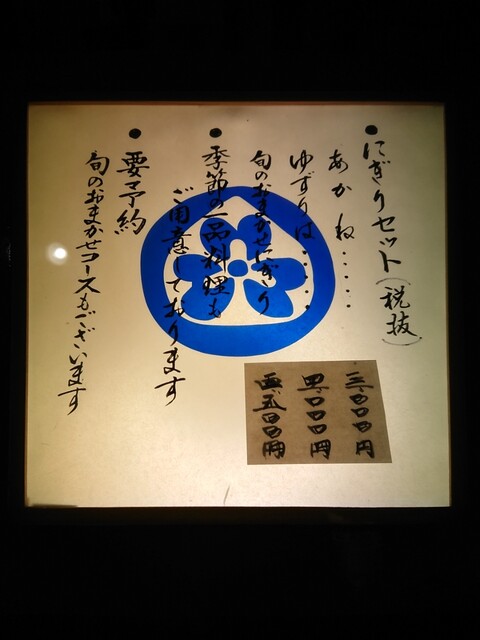 ●にぎりセット(税抜)
あかね・・・・・
ゆずりは・・・・
旬のおまかせにぎり
●季節の一品料理も
ご用意しております
●要予約
旬のおまかせコースもございます
三、〇〇〇円
四、〇〇〇円
五、五〇〇円